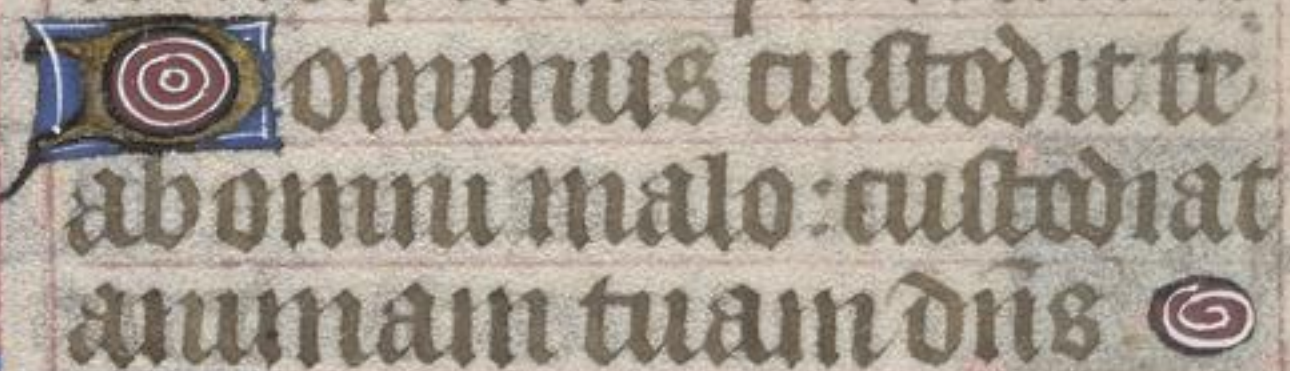 Dominus custodit te
ab omni malo : custodiat
animam tuam dñs